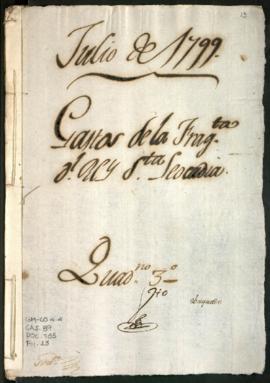 13
Julio de 1799.
Gastos de la Frag.ta
d.l Rey S.ta Leocadia.
Quad.no 3.o
GM-CO 4-4
CAJ. 89
DOC. 385
Fol. 13